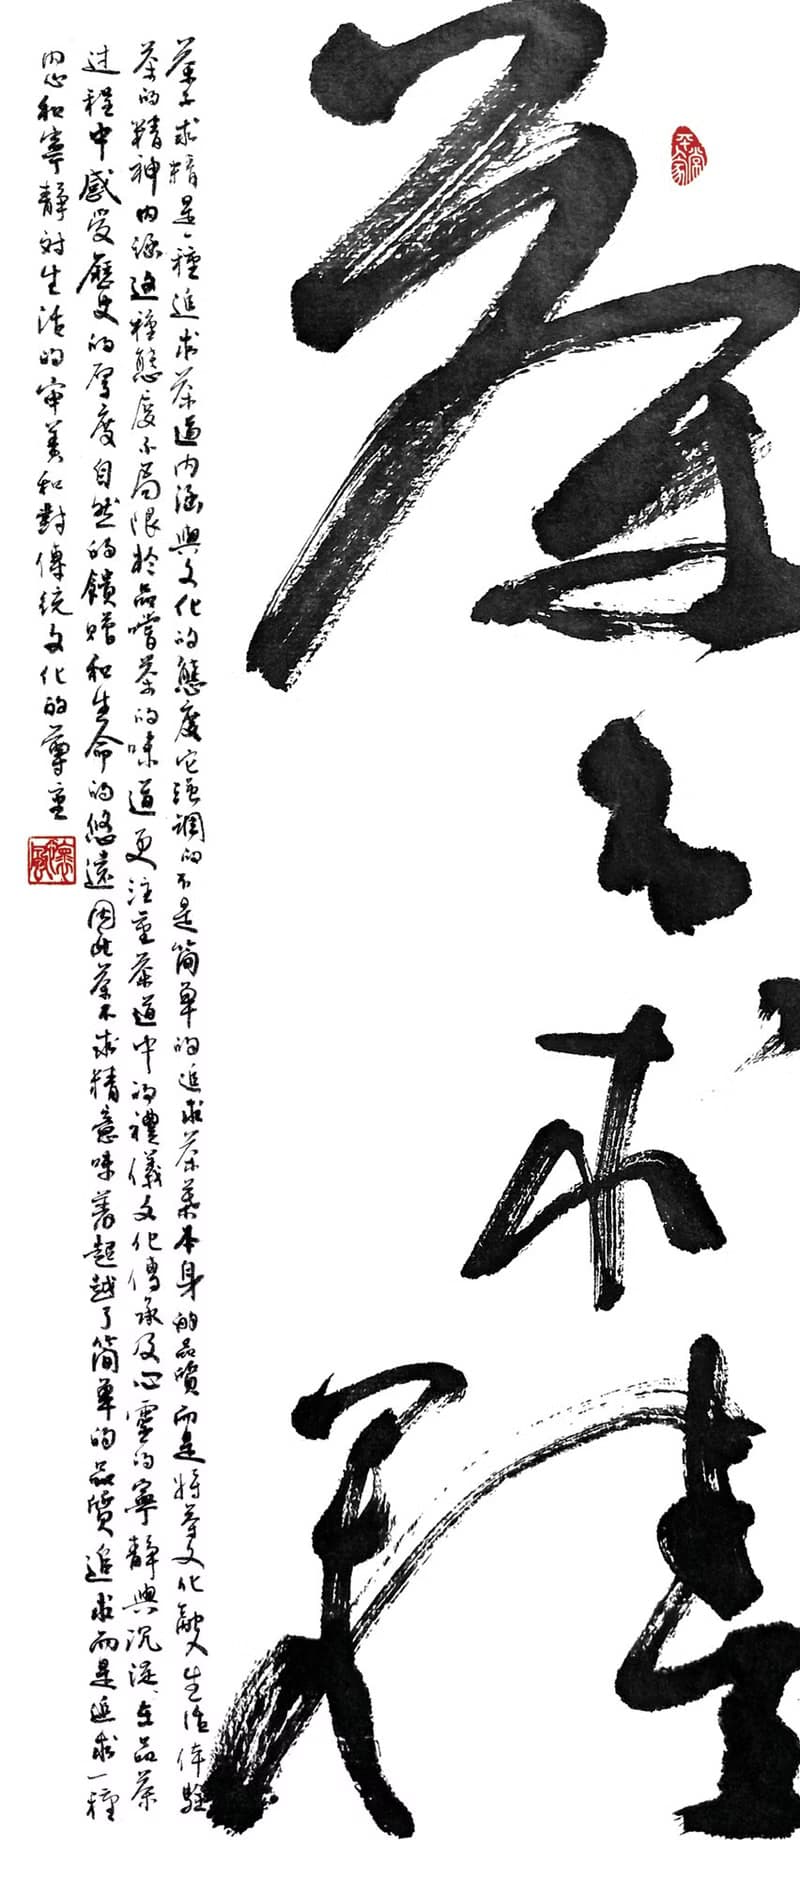 茶不求精
平常家
茶不求精是一種追求茶道内涵與文化的態度它強調的不是简單的追求茶葉本身的品質而是將茶文化融入生活体驗
茶的精神内涵這種態度不局限於品嚐茶的味道更注重茶道中的禮儀文化傳承及心靈的寧靜與沉淀在品茶
过程中感受歷史的厚度自然的饋贈和生命的悠遠因此茶不求精意味著超越了简單的品質追求而是追求一種
内心和寧靜对生活的审美和對傳統文化的尊重
懷風